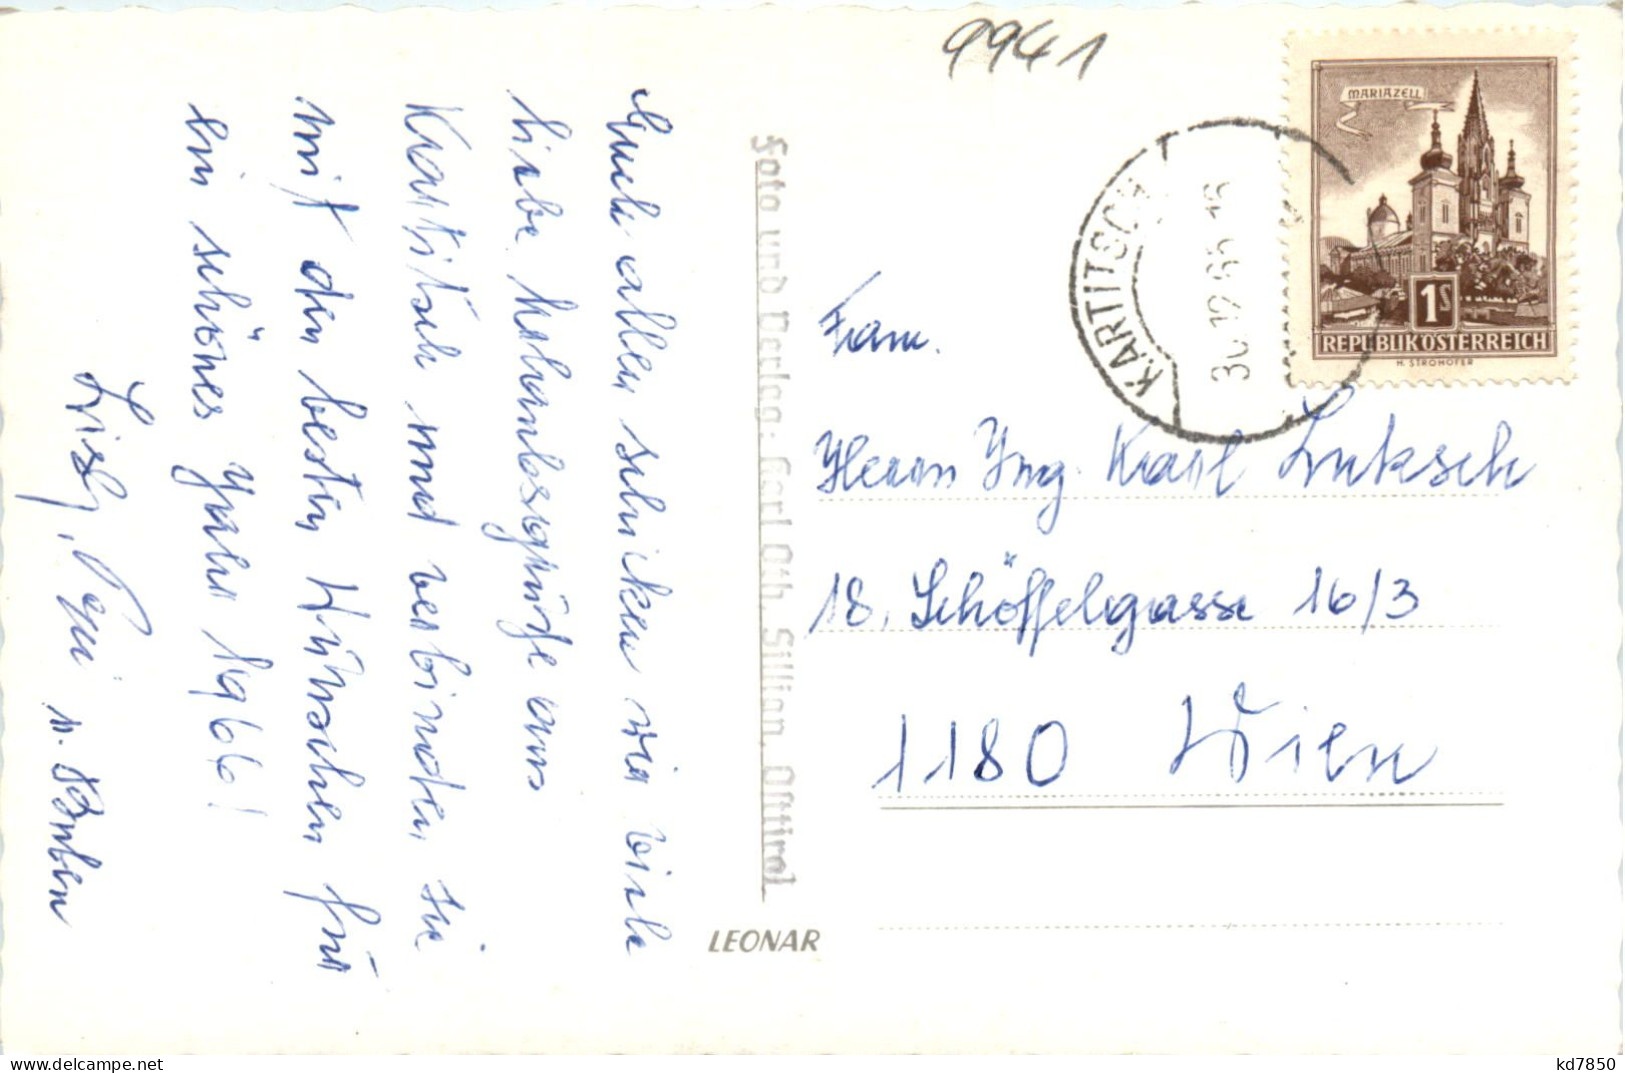 9941
MARIAZELL
1S
REPUBLIK ÖSTERREICH
H. STROHOFER
KARTITSCH
30.12.65-18
Euch allen schicken wir viele
liebe Urlaubsgrüße aus
Kartitsch und verbinden sie
mit den besten Wünschen für
ein schönes Jahr 1966!
Liesl, u. Buben
Foto und Verlag: Karl Oth, Sillian, Osttirol
LEONAR
Fam.
Herrn Ing. Karl Luksch
18, Schöffelgasse 16/3
1180 Wien
kd7850